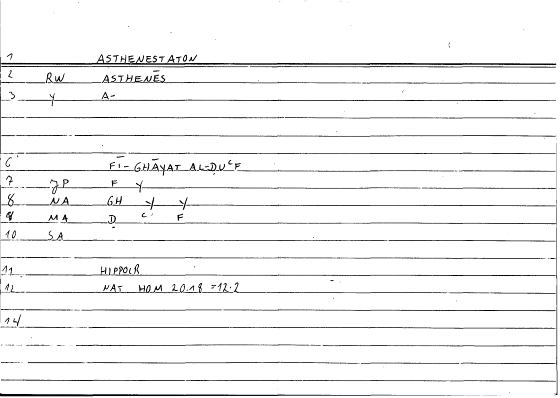 1 ASTHENESTATON
2 RW ASTHENĒS
3 Y A-
6 FĪ-GHĀYAT AL-ḌUʿF
7 JP F Y
8 NA GH Y Y
9 MA Ḍ ʿ F
10 SA
11 HIPPOCR
12 NAT HOM 20.18 =12.2
14